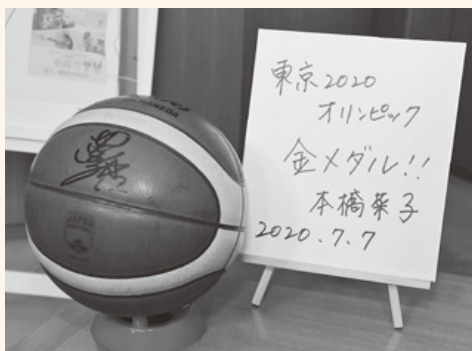 東京2020
オリンピック
金メダル!!
本橋菜子
2020.7.7